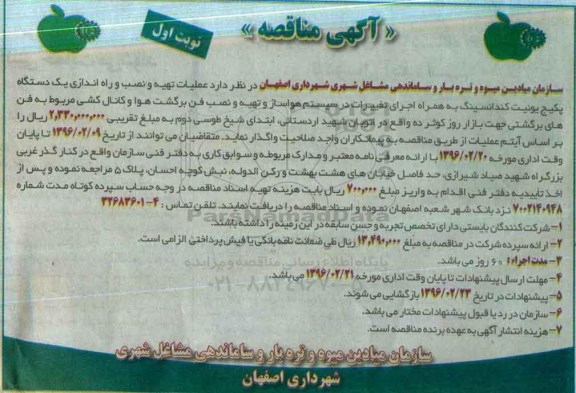 « آگهی مناقصه »
نوبت اول
سازمان میادین میوه و تره بار و ساماندهی مشاغل شهری شهرداری اصفهان در نظر دارد عملیات تهیه و نصب و راه اندازی یک دستگاه
پکیج یونیت کندانسینگ به همراه اجرای تغییرات در سیستم هواساز و تهیه و نصب فن برگشت هوا و کانال کشی مربوط به فن
های برگشتی جهت بازار روز کوثر ده واقع در اتوبان شهید اردستانی، ابتدای شیخ طوسی دوم به مبلغ تقریبی ۲,۳۳۰,۰۰۰,۰۰۰ ریال را
بر اساس آیتم عملیات از طریق مناقصه به پیمانکاران واجد صلاحیت واگذار نماید. متقاضیان می توانند از تاریخ ۱۳۹۶/۰۲/۰۹ تا پایان
وقت اداری مورخه ۱۳۹۶/۰۲/۲۰ با ارائه معرفی نامه معتبر و مدارک مربوطه و سوابق کاری به دفتر فنی سازمان واقع در کنار گذر غربی
بزرگراه شهید صیاد شیرازی، حد فاصل خیابان های هشت بهشت و رکن الدوله، نبش کوچه احسان، پلاک ۵ مراجعه نموده و پس از
اخذ تاییدیه دفتر فنی اقدام به واریز مبلغ ۷۰۰,۰۰۰ ریال بابت هزینه تهیه اسناد مناقصه در وجه حساب سپرده کوتاه مدت شماره
۷۰۰۲۱۴۰۹۴۸ نزد بانک شهر شعبه اصفهان نموده و اسناد مناقصه را دریافت نمایند. تلفن تماس : ۴-۳۲۶۸۳۶۰۱
۱- شرکت کنندگان بایستی دارای تخصص تجربه و حسن سابقه در این زمینه را داشته باشند.
۲- ارائه سپرده شرکت در مناقصه به مبلغ ۱۳,۴۹۰,۰۰۰ ریال طی ضمانت نامه بانکی یا فیش پرداختی الزامی است.
۳- مدت اجراء: ۶۰ روز می باشد.
۴- مهلت ارسال پیشنهادات تا پایان وقت اداری مورخه ۱۳۹۶/۰۲/۲۱ می باشد.
۵- پیشنهادات در تاریخ ۱۳۹۶/۰۲/۲۳ بازگشایی می شوند.
۶- سازمان در رد یا قبول پیشنهادات مختار می باشد.
۷- هزینه انتشار آگهی به عهده برنده مناقصه است.
سازمان میادین میوه و تره بار و ساماندهی مشاغل شهری
شهرداری اصفهان
ParsNamadData
پایگاه اطلاع رسانی مناقصه و مزایده